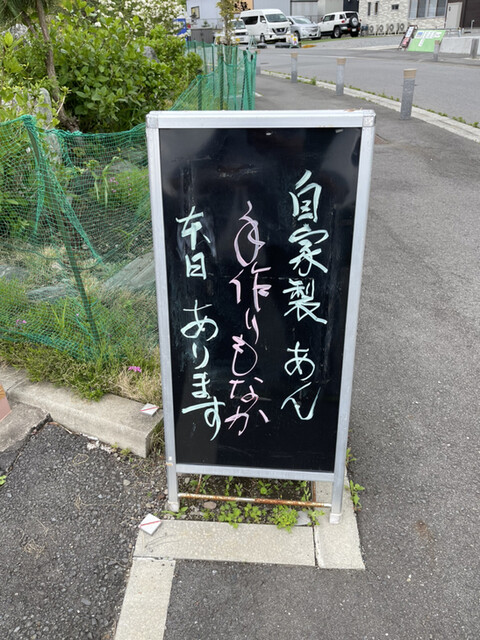 自家製 あん
手作りもなか
本日 あります